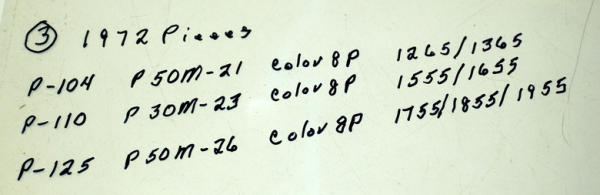 ③ 1972 Pieces
P-104 P50M-21 color 8P 1265/1365
P-110 P30M-23 color 8P 1555/1655
P-125 P50M-26 color 8P 1755/1855/1955